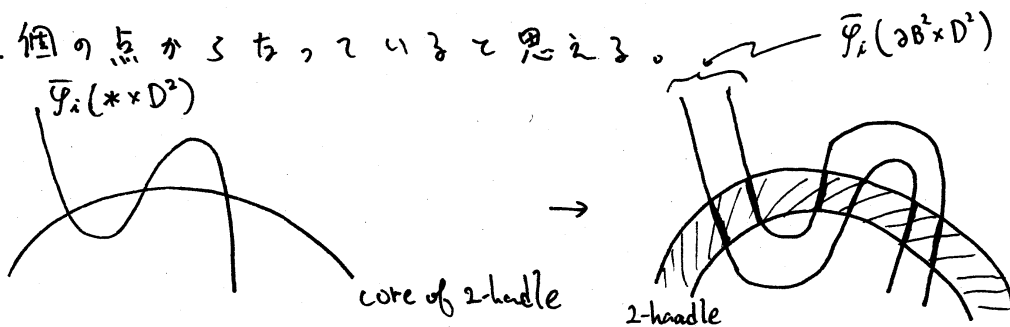 個の点からなっていると思える。
φ̄ᵢ(∂B²×D²)
φ̄ᵢ(*×D²)
→
core of 2-hadle
2-haadle